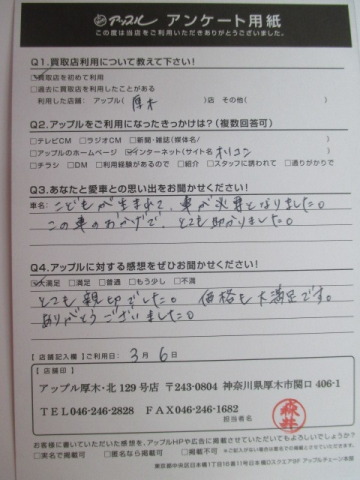 アップル アンケート用紙
この度は当店をご利用いただきありがとうございました。
Q1.買取店利用について教えて下さい!
☑買取店を初めて利用
□過去に買取店を利用したことがある
利用した店舗: アップル( 厚木 )店 その他( )
Q2.アップルをご利用になったきっかけは?(複数回答可)
□テレビCM □ラジオCM □新聞・雑誌(媒体名/ )
□アップルのホームページ ☑インターネット(サイト名 オリコン )
□チラシ □DM □利用経験があるので □紹介 □スタッフに誘われて □通りがかりで
Q3.あなたと愛車との思い出をお聞かせください!
車名: こどもが生まれて、車が必要となりました。
この車のおかげで、とても助かりました。
Q4.アップルに対する感想をぜひお聞かせください!
☑大満足 □満足 □普通 □もう少し □不満
とても親切でした。 価格も大満足です。
ありがとうございました。
【店舗記入欄】ご利用日: 3月 6日
【店舗印】
アップル厚木・北129号店 〒243-0804 神奈川県厚木市関口406-1
TEL046-246-2828 FAX046-246-1682
担当者名
お客様に書いていただいた感想を、アップルHPや広告に掲載させていただいてもよろしいでしょうか?
□実名で掲載可 □匿名なら掲載可 □掲載不可 ※ご記入がない場合は掲載可とさせていただきます。